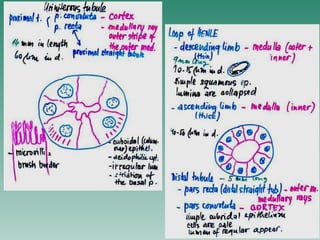 Uriniferous tubule
proximal t. p. convoluta - CORTEX
p. recta - medullary ray
outer stripe of
the outer med.
14 mm in length
60 µm in d.
proximal straight tubule
- microvilli
brush border
- cuboidal (colum-
nar) epithel.
- acidophilic cyt.
- irregular lum
- striation of
the basal p.
Loop of HENLE
- descending limb - medulla (outer +
(thin) inner)
10-15 µm in d.
simple squamous ep.
lumina are collapsed
- ascending limb - medulla (inner)
(THICK)
in d.
Distal tubule - 5 mm long
- pars recta (distal straight tub) - outer m.
medullary rays
- pars convoluta - CORTEX
simple cuboidal epithelium
cells are pale
lumen of regular appear.